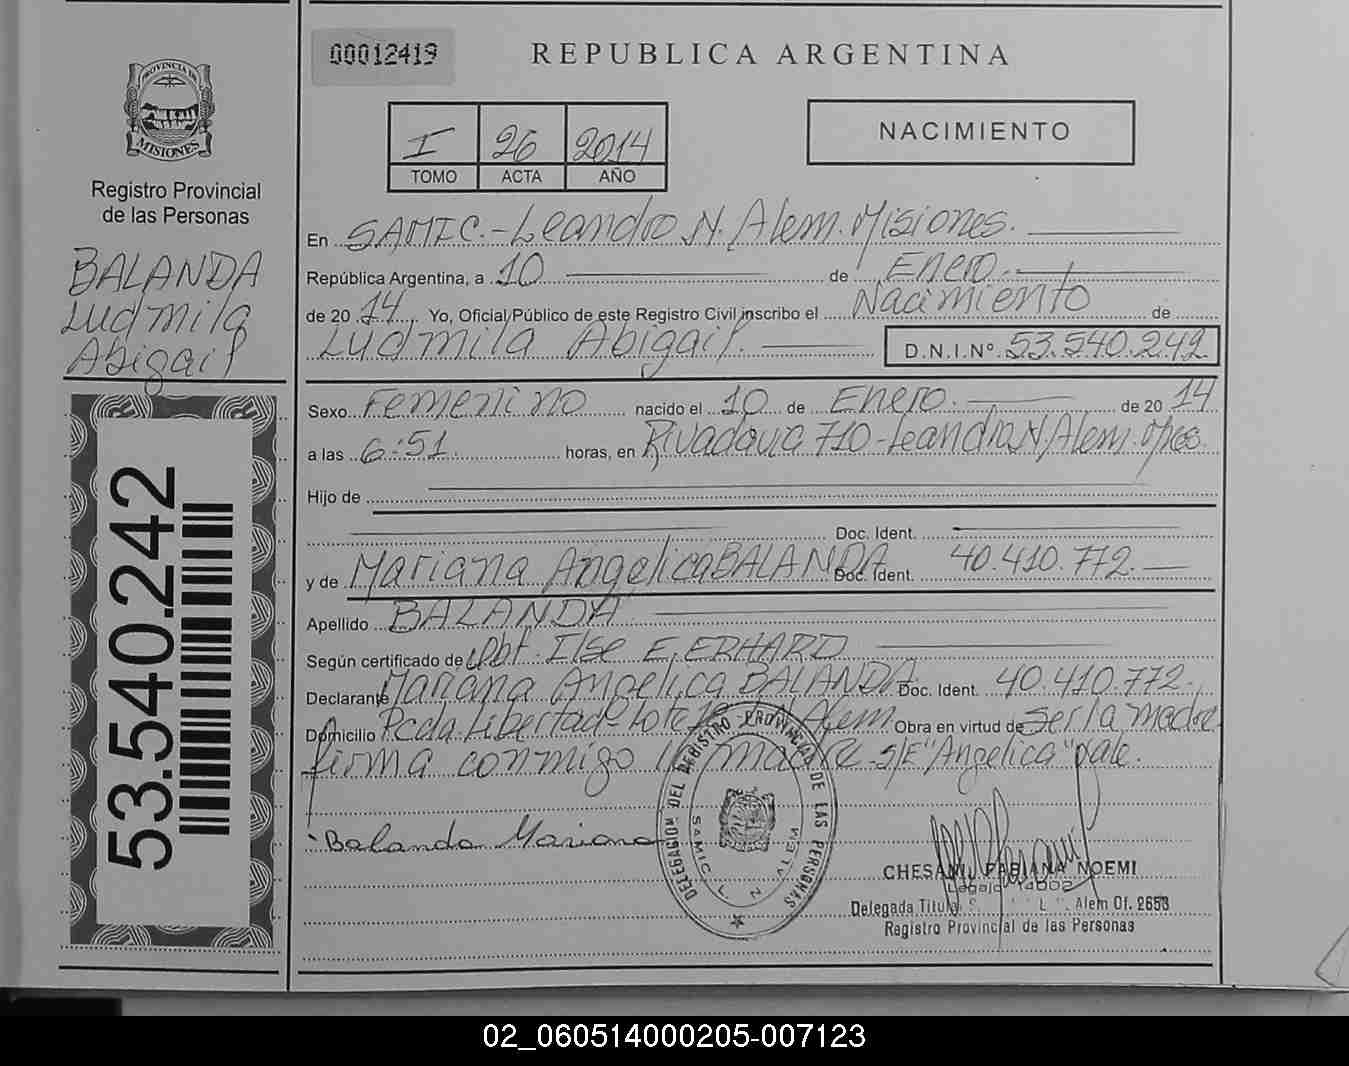 00012419
REPUBLICA ARGENTINA
PROVINCIA DE
MISIONES
Registro Provincial
de las Personas
BALANDA
Ludmila
Abigail
53.540.242
I 26 2014
TOMO ACTA AÑO
NACIMIENTO
En SAMIC.-Leandro N. Alem. Misiones.
República Argentina, a 10 de Enero.
de 20 14 Yo, Oficial Público de este Registro Civil inscribo el Nacimiento de
Ludmila Abigail. D.N.I.Nº 53.540.242
Sexo Femenino nacido el 10 de Enero. de 20 14
a las 6:51. horas, en Rivadavia 710-Leandro N. Alem. Mnes.
Hijo de
Doc. Ident.
y de Mariana Angelica BALANDA Doc. Ident. 40.410.772.
Apellido BALANDA
Según certificado de Obt. Ilse E. ERHARD
Declarante Mariana Angelica BALANDA Doc. Ident. 40.410.772.
Domicilio Pcda. Libertad- Lote N Alem Obra en virtud de ser la madre
firma conmigo la madre. S/E "Angelica" vale.
Balanda Mariana
DELEGACION DEL REGISTRO PROVINCIAL DE LAS PERSONAS
SAMIC L N ALEM
CHESANI, FABIANA NOEMI
Legajo 14002
Delegada Titular S L Alem Of. 2653
Registro Provincial de las Personas
02_060514000205-007123